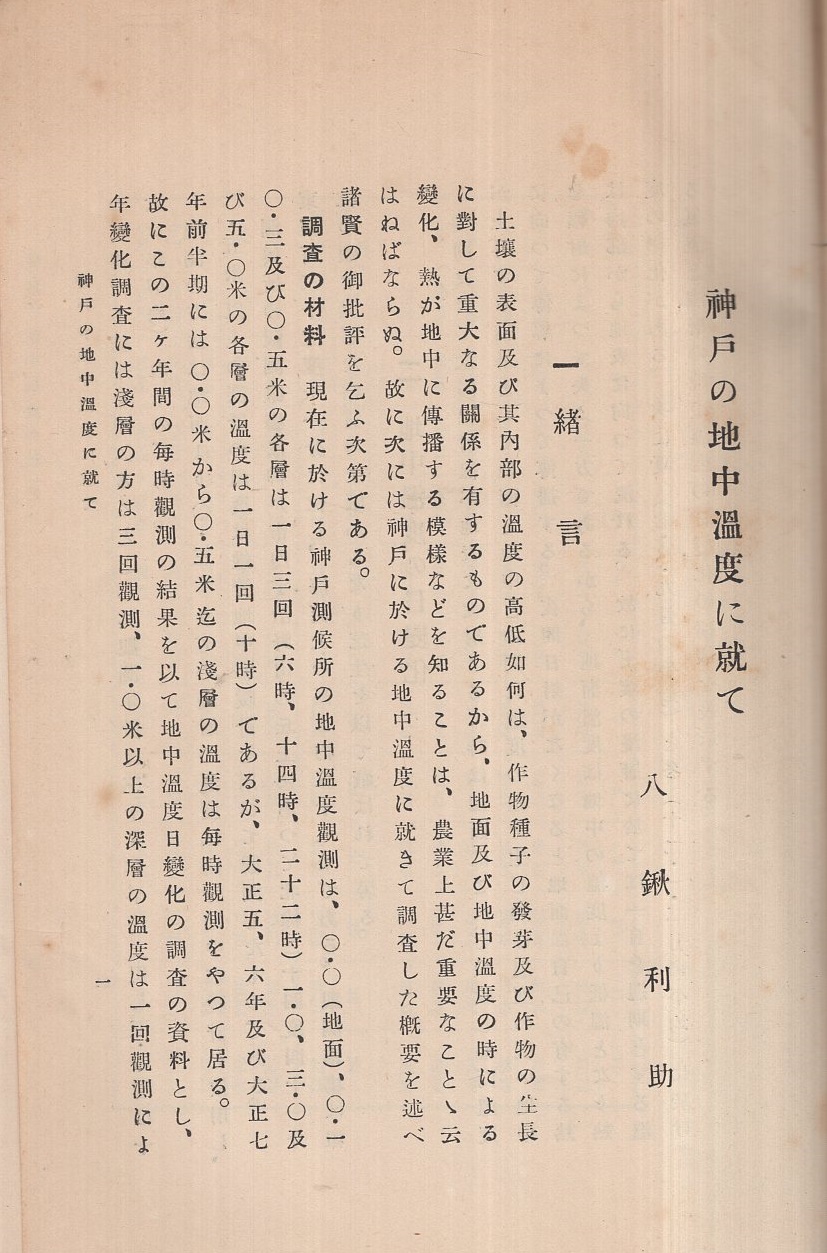 神戶の地中溫度に就て
八鍬利助
一緖言
土壤の表面及び其內部の溫度の高低如何は、作物種子の發芽及び作物の生長
に對して重大なる關係を有するものであるから、地面及び地中溫度の時による
變化、熱が地中に傳播する模樣などを知ることは、農業上甚だ重要なことゝ云
はねばならぬ。故に次には神戶に於ける地中溫度に就きて調査した槪要を述べ
諸賢の御批評を乞ふ次第である。
調査の材料 現在に於ける神戶測候所の地中溫度觀測は、〇・〇(地面)、〇・一
〇・三及び〇・五米の各層は一日三回(六時、十四時、二十二時)一・〇、三・〇及
び五・〇米の各層の溫度は一日一回(十時)であるが、大正五、六年及び大正七
年前半期には〇・〇米から〇・五米迄の淺層の溫度は每時觀測をやつて居る。
故にこの二ヶ年間の每時觀測の結果を以て地中溫度日變化の調査の資料とし、
年變化調査には淺層の方は三回觀測、一・〇米以上の深層の溫度は一回觀測によ
神戶の地中溫度に就て
一